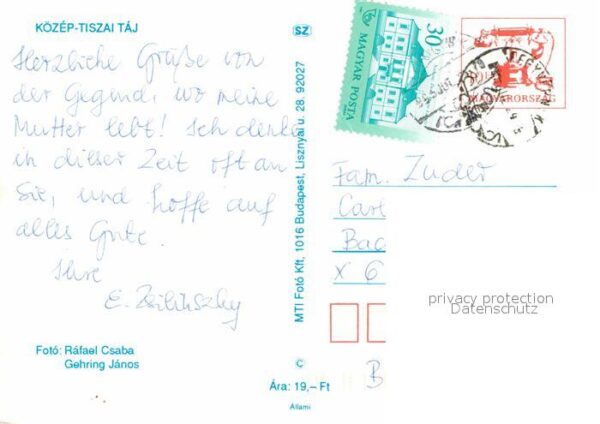 KÖZÉP-TISZAI TÁJ
Herzliche Grüße von
der Gegend, wo meine
Mutter lebt! Ich denke
in dieser Zeit oft an
Sie, und hoffe auf
alles Gute.
Ihre
E.
Fotó: Ráfael Csaba
Gehring János
SZ
MTI Fotó Kft, 1016 Budapest, Lisznyai u. 28. 92027
C
Ára: 19,– Ft
Állami
30 Ft
MAGYAR POSTA
MAGYARORSZÁG
Fam. Zuder
Carl
Bac
x 6
B
privacy protection
Datenschutz